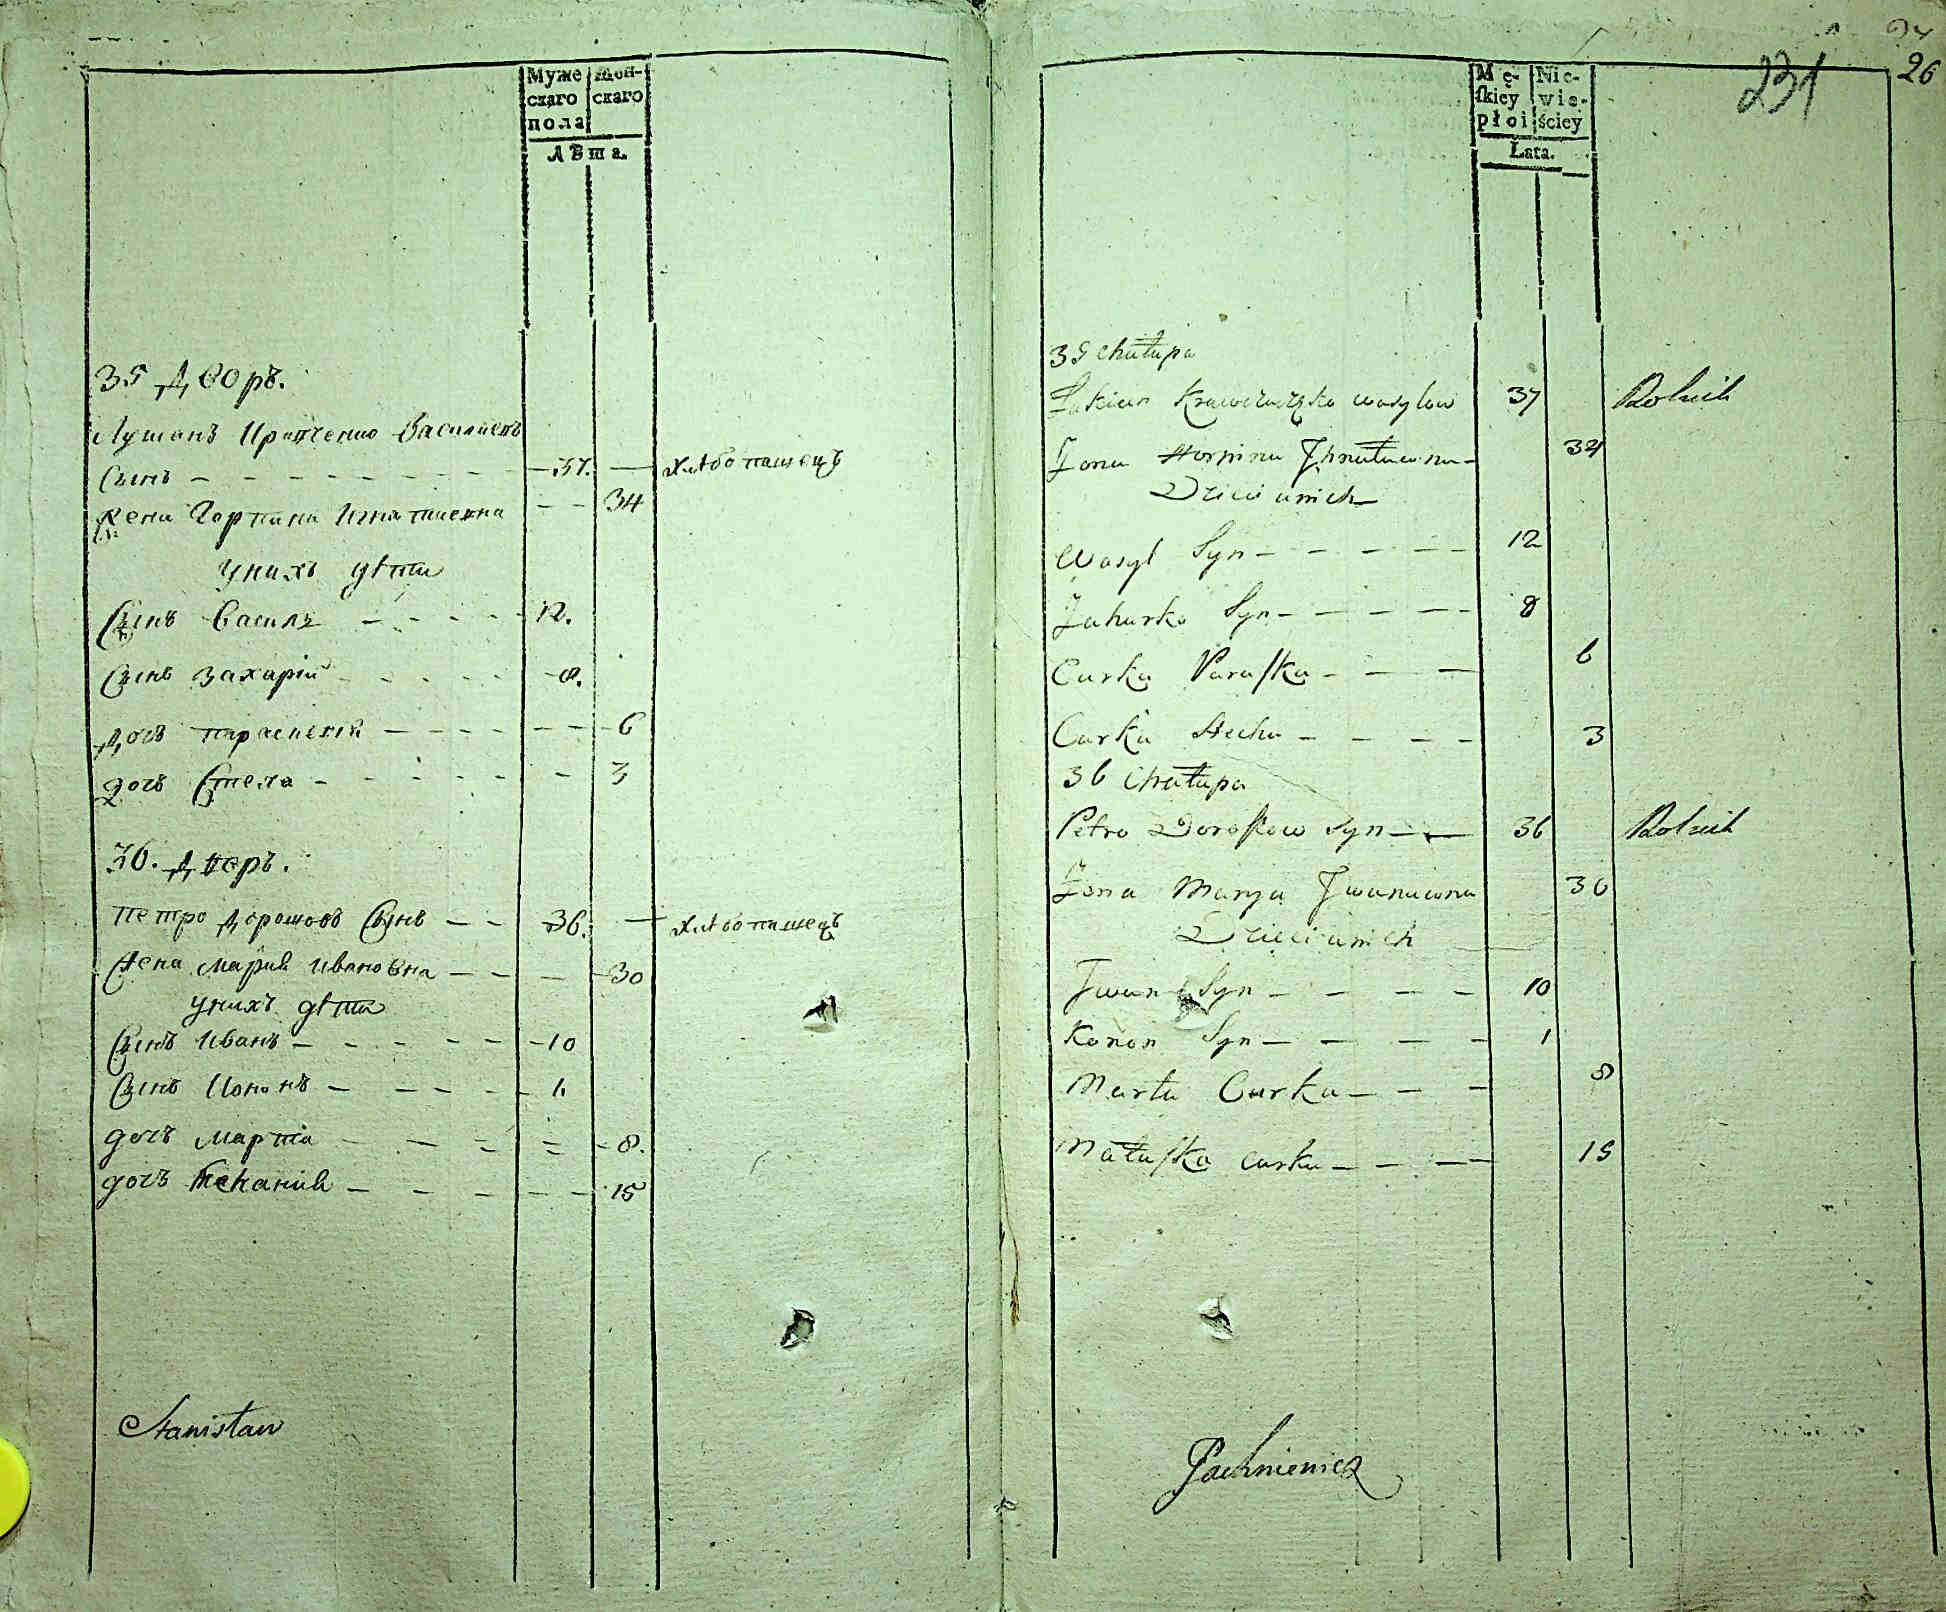 Муже
скаго
пола
Жен-
скаго
Лѣта.
35 Дворъ.
Василіевъ
Сынъ — 37. — хлѣбопашецъ
Жена Горпина Игнатиевна — 34
у нихъ дѣти
Сынъ Василь — 12.
Сынъ Захарій — 8.
Дочь Параскевія — 6
дочь Стеха — 3
36. Дворъ.
Петро Дорошовъ Сынъ — 36. — хлѣбопашецъ
Жена Мария Ивановна — 30
у нихъ дѣти
Сынъ Иванъ — 10
Сынъ Кононъ — 1.
дочь Марта — 8.
дочь — 15
Stanisław
231
26
Mę-
skiey
płci
Nie-
wie-
ściey
Lata.
35 Chałupa
Krawczuczęko Wasylow 37 Rolnik
Żona Horpina Ihnatiawna 34
Dzieci u nich
Wasyl Syn — 12
Zaharko Syn — 8
Curka Paraska — 6
Curka Stecha — 3
36 Chałupa
Petro Doroszow Syn — 36 Rolnik
Żona Marya Iwanowna 30
Dzieci u nich
Iwan Syn — 10
Konon Syn — 1
Marta Curka — 8
Małaszka curka — 15
Pachniewicz